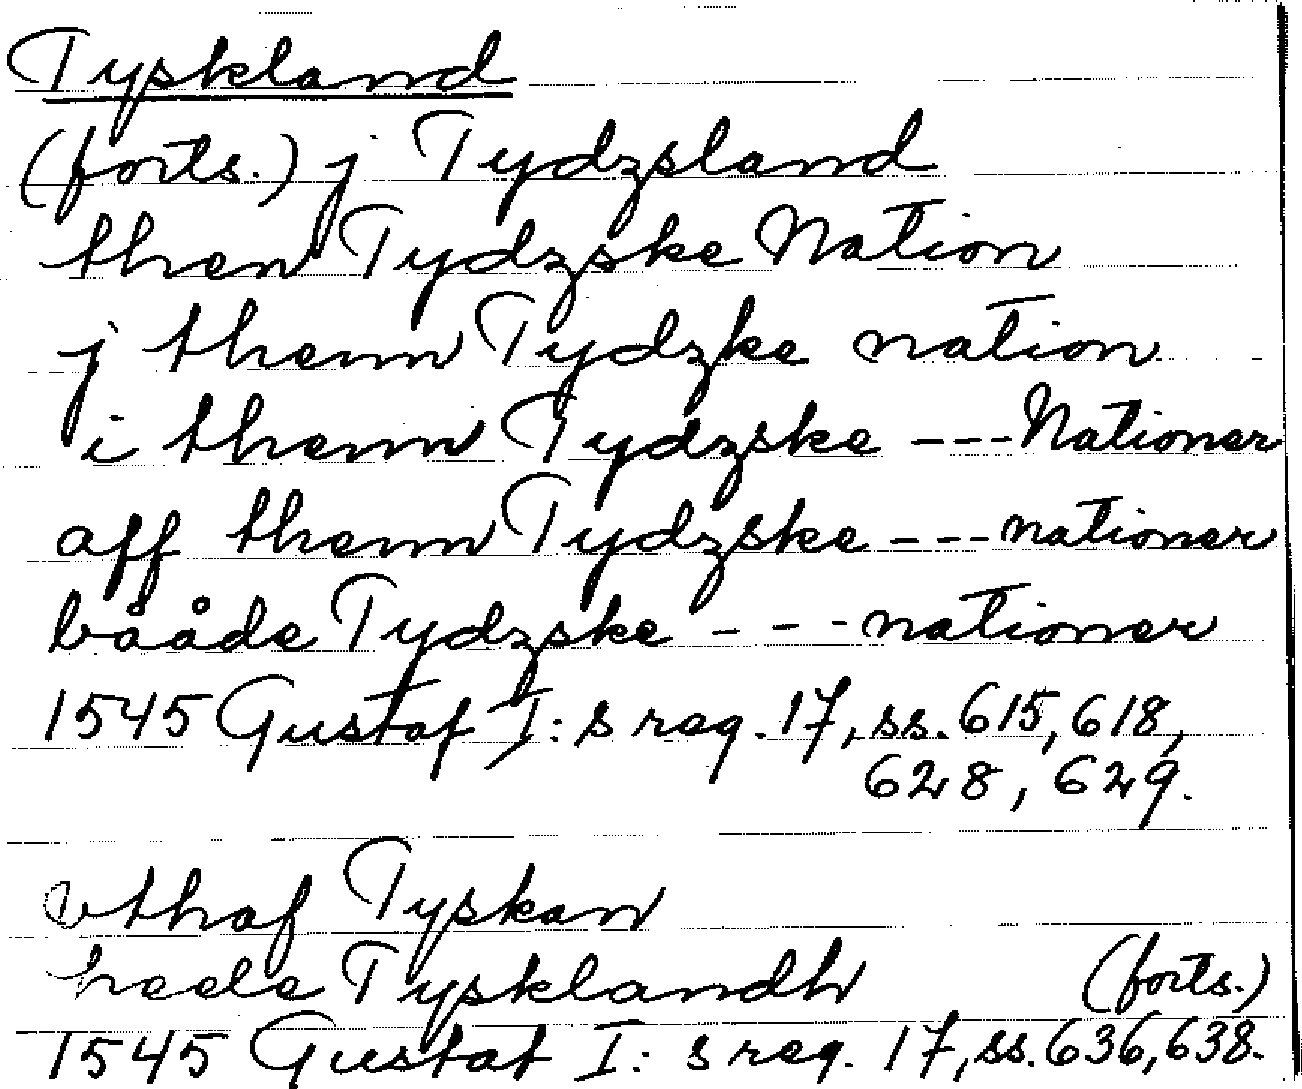 Tyskland
(forts.) j Tydzsland
then Tydzske Nation
j thenn Tydzke nation
i thenn Tydzske --- Nationer
aff thenn Tydzske --- nationer
bååde Tydzske --- nationer
1545 Gustaf I:s reg. 17, ss. 615, 618,
628, 629.
vthaf Tyskan
heele Tysklandh (forts.)
1545 Gustaf I:s reg. 17, ss. 636, 638.